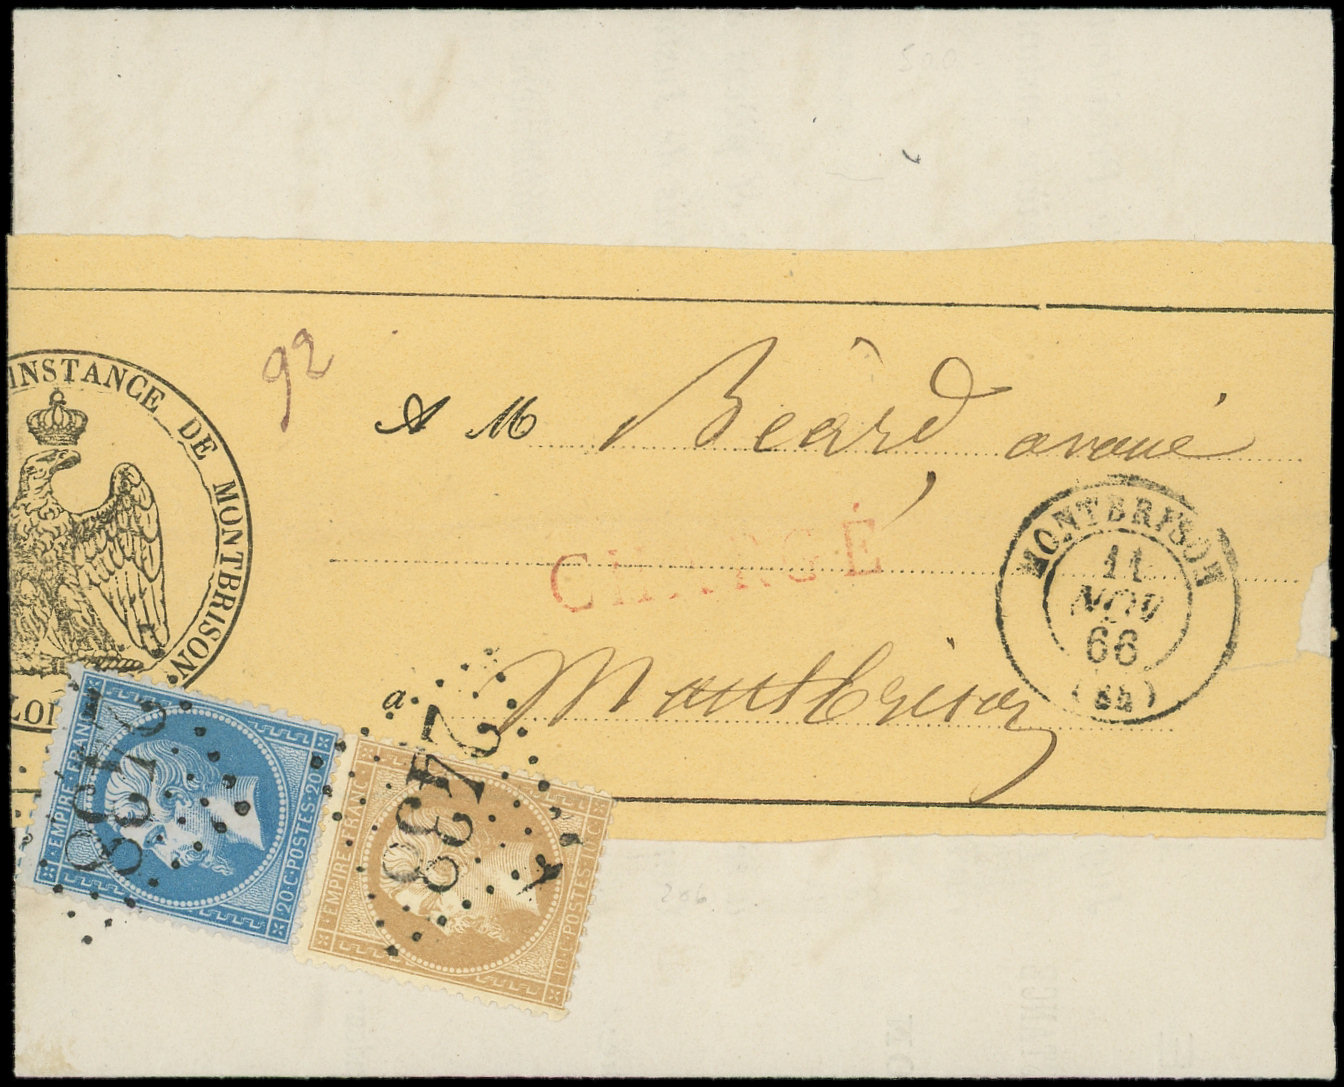 500
INSTANCE DE MONTBRISON
92
A M Béard, avoué
CHARGÉ
MONTBRISON
11
NOV
66
(84)
a Montbrison
LOI
2438
EMPIRE·FRANC
20·C·POSTES·20·C
2438
EMPIRE·FRANC
10·C·POSTES·10·C
206